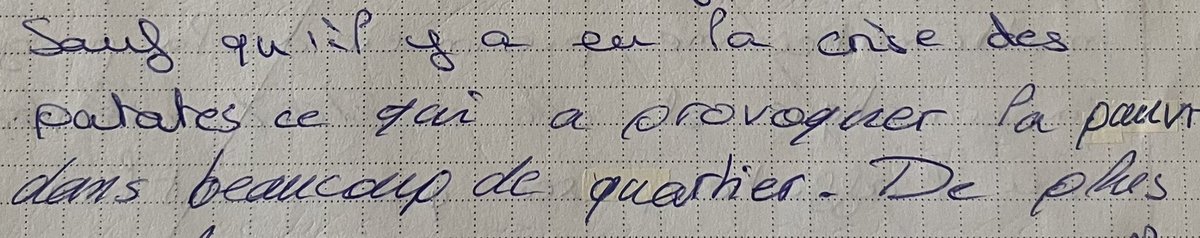 Sauf qu'il y a eu la crise des
patates ce qui a provoquer la pauvr
dans beaucoup de quartier. De plus